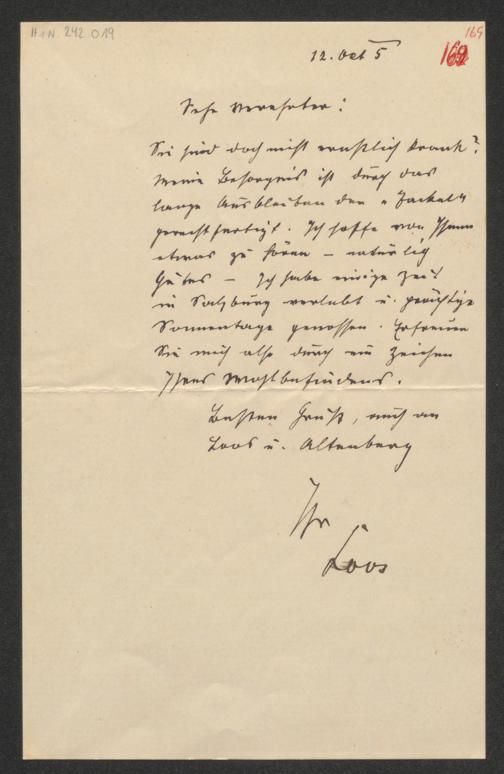 H.I.N. 242.019
169
12. Oct 5
169
Sehr Verehrter!
Sie sind doch nicht ernstlich krank?
Meine Besorgnis ist durch das
lange Ausbleiben der „Fackel“
gerechtfertigt. Ich hoffe von Ihnen
etwas zu hören – natürlich
Gutes – Ich habe einige Zeit
in Salzburg verlebt u. prächtige
Sonnentage genossen. Erfreuen
Sie mich also durch ein Zeichen
Ihres Wohlbefindens.
Besten Gruß, auch an
Loos u. Altenberg
Ihr